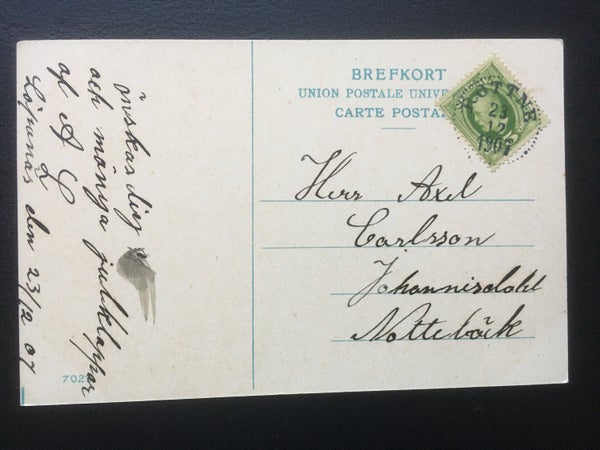 önskas dig
och många julklappar
af A L
den 23/12 07
BREFKORT
UNION POSTALE UNIV
CARTE POSTA
23
12
1907
Herr Axel
Carlsson
Johannisdahl
Nottebäck
702